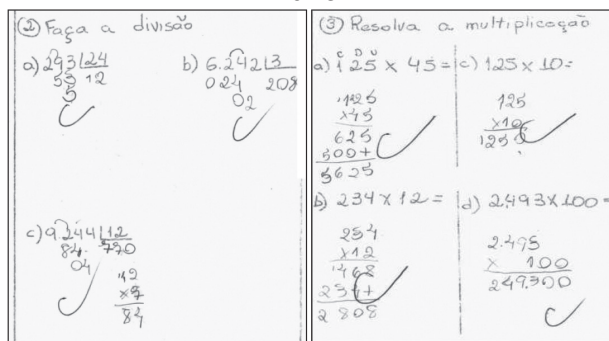 ② Faça a divisão
a) 293 24
53 12
5
b) 6.242 3
024 208
02
c) 9.244 12
84. 770
04
12
×7
84
③ Resolva a multiplicação
C D U
a) 125 × 45 =
125
×45
625
500+
5625
c) 125 × 10 =
125
×10
1250
b) 234 × 12 =
234
×12
468
234+
2808
d) 2.493 × 100 =
2.493
× 100
249.300